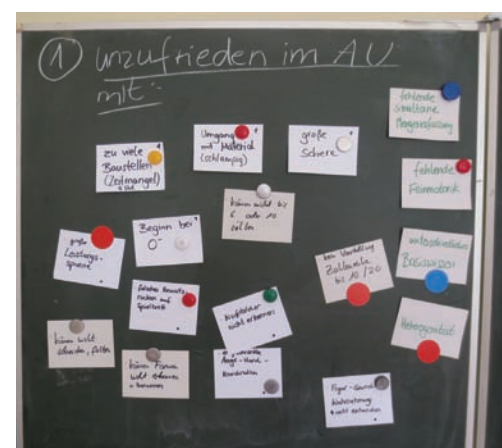 ① unzufrieden im AU
mit:
fehlende
simultane
Mengenerfassung
zu viele
Baustellen
(Zeitmangel)
Umgang
mit Material
(schlampig)
große
Schere
fehlende
Feinmotorik
können nicht bis
6 oder 10
zählen
große
Leistungs-
spanne
Beginn bei
"0"
keine Vorstellung
Zahlenreihe
bis 10/20
unterschiedliches
Basiswissen
falsches
nicht erkennen
Heterogenität
können nicht
schneiden, falten
können Formen
nicht erkennen
+ benennen
Auge-Hand-
Koordination
Figur-Grund
Wahrnehmung